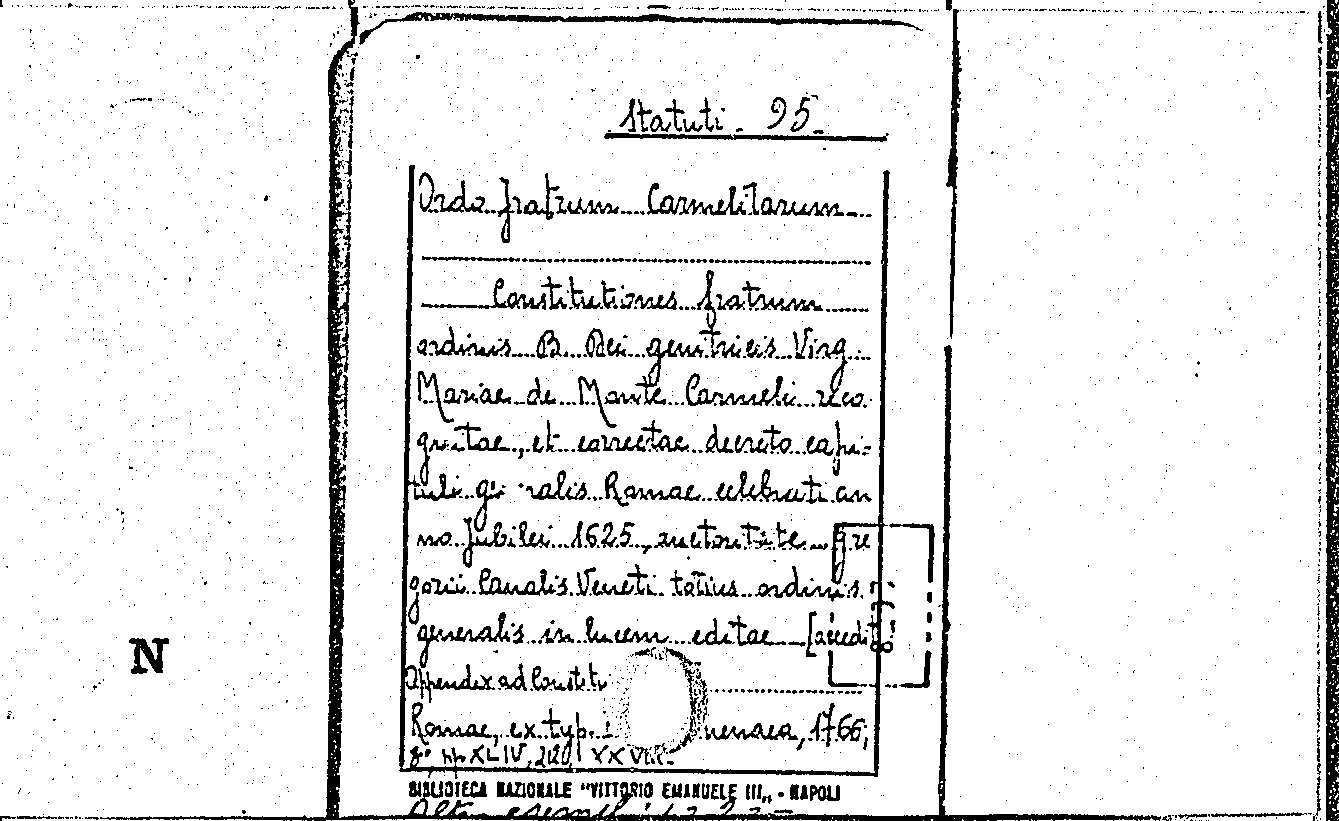 Statuti - 95 -
Ordo fratrum Carmelitarum
Constitutiones fratrum
ordinis B. Dei genitricis Virg.
Mariae de Monte Carmeli reco
gnitae, et correctae decreto capi-
tuli ralis Romae celebrati an
no Jubilei 1625, auctoritate Gre
gorii Canalis Veneti totius ordinis
generalis in lucem editae [accedit
Appendix ad Constitu
Romae, ex typ. 1766,
8° pp. XLIV,
N
BIBLIOTECA NAZIONALE "VITTORIO EMANUELE III„ - NAPOLI